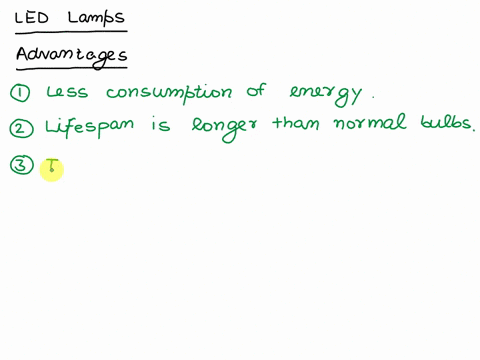 LED Lamps
Advantages
① Less consumption of energy.
② Lifespan is longer than normal bulbs.
③